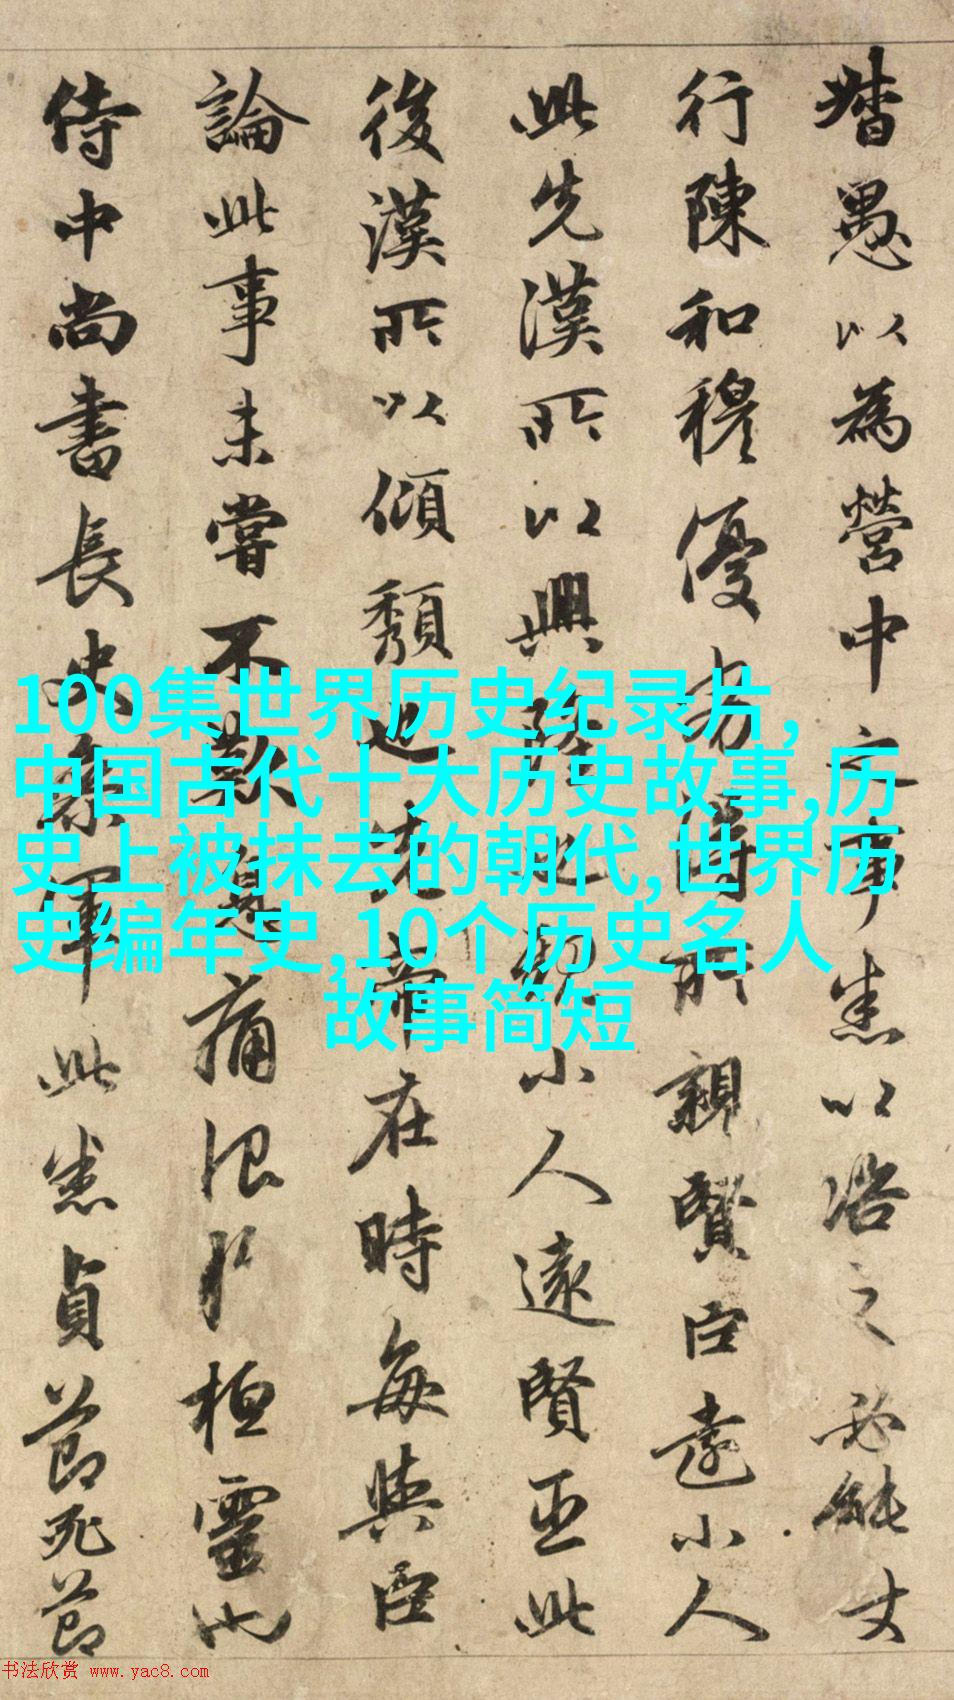 督愚以為營中之事悉以諮之必能丈
行陳和穆優劣得所親賢臣遠小人
此先漢所以興隆也親小人遠賢臣此
後漢所以傾頹也先帝在時每與臣
論此事未嘗不歎息痛恨於桓靈也
侍中尚書長史參軍此悉貞節死節
100集世界历史纪录片,
中国古代十大历史故事,历
史上被抹去的朝代,世界历
史编年史,10个历史名人
故事简短
书法欣赏 www.yac8.com